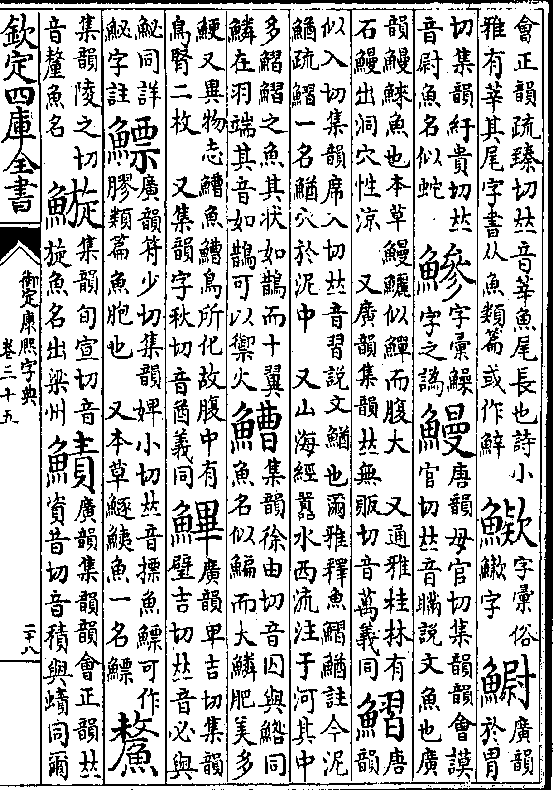 會正韻疏臻切𠀤音莘魚尾長也詩小
雅有莘其尾字書从魚類篇或作鮮
字彙俗
字
䲁
廣韻
於胃
切集韻紆貴切𠀤
音尉魚名似蛇
鰺
字彙鱢
字之譌
鰻
唐韻母官切集韻韻會謨
官切𠀤音瞞說文魚也廣
韻鰻鯠魚也本草鰻鱺似鱓而腹大 又通雅桂林有
石鰻出洞穴性涼 又廣韻集韻𠀤無販切音萬義同
鰼
唐
韻
似入切集韻席入切𠀤音習說文鰌也爾雅釋魚鰼鰌註今泥
鰌疏鰼一名鰌穴於泥中 又山海經嚻水西流注于河其中
多鰼鰼之魚其狀如鵲而十翼
鱗在羽端其音如鵲可以禦火
鰽
集韻徐由切音囚與鮂同
魚名似鯿而大鱗肥美多
鯁又異物志鰽魚鰽鳥所化故腹中有
鳥腎二枚 又集韻字秋切音酋義同
廣韻畢吉切集韻
璧吉切𠀤音必與
鮅同詳
鮅字註
鰾
廣韻符少切集韻婢小切𠀤音摽魚鰾可作
膠類篇魚胞也 又本草鱁鮧魚一名鰾
集韻陵之切
音釐魚名
集韻旬宣切音
旋魚名出梁州
鰿
廣韻集韻韻會正韻𠀤
資昔切音積與蟦同爾
欽定四庫全書
御定康熙字典
卷三十五
二十八